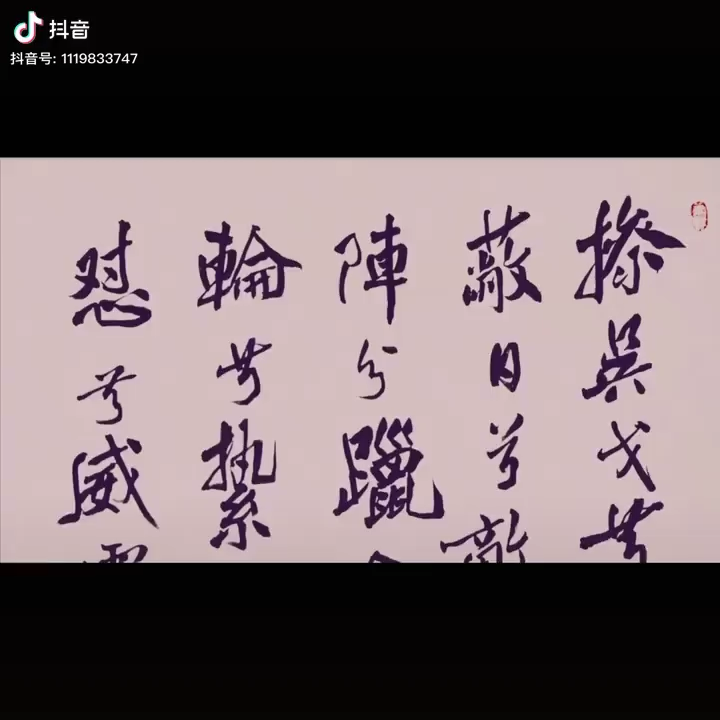 抖音
抖音号: 1119833747
操吳戈兮
蔽日兮敵
陣兮躐
輪兮縶
怼兮威